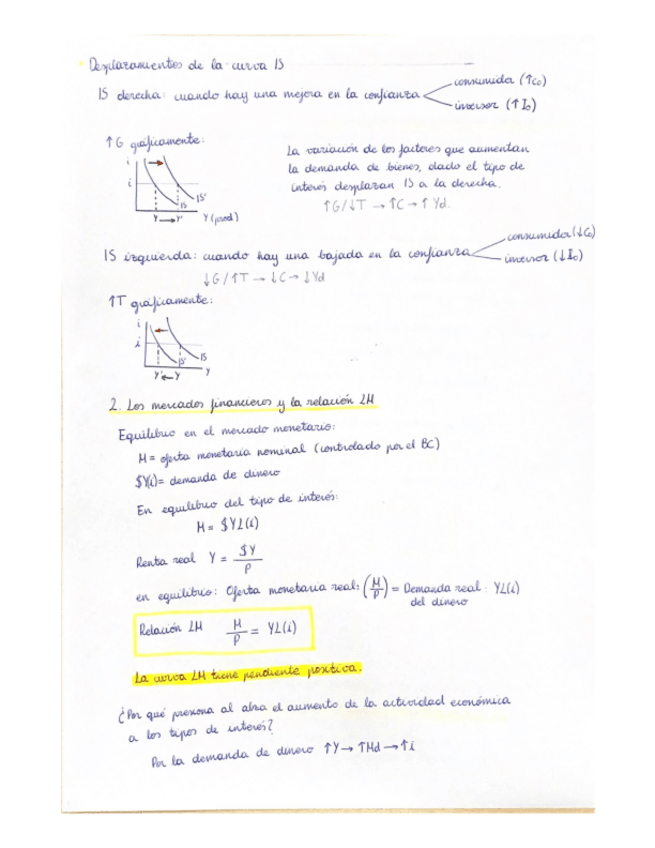 Desplazamientos de la curva IS
IS derecha: cuando hay una mejora en la confianza
consumidor (↑C₀)
inversor (↑I₀)
↑G gráficamente:
i
i
IS'
IS
Y → Y' Y (prod)
La variación de los factores que aumentan
la demanda de bienes, dado el tipo de
interés desplazan IS a la derecha.
↑G/↓T → ↑C → ↑Yd.
IS izquierda: cuando hay una bajada en la confianza
consumidor (↓C₀)
inversor (↓I₀)
↓G/↑T → ↓C → ↓Yd
↑T gráficamente:
i
i
IS
IS'
Y' ← Y Y
2. Los mercados financieros y la relación LM
Equilibrio en el mercado monetario:
M = oferta monetaria nominal (controlado por el BC)
$Y(i) = demanda de dinero
En equilibrio del tipo de interés:
M = $YL(i)
Renta real Y = $Y/P
en equilibrio: Oferta monetaria real: (M/P) = Demanda real : YL(i)
del dinero
Relación LM M/P = YL(i)
La curva LM tiene pendiente positiva.
¿Por qué presiona al alza el aumento de la actividad económica
a los tipos de interés?
Por la demanda de dinero ↑Y → ↑Md → ↑i